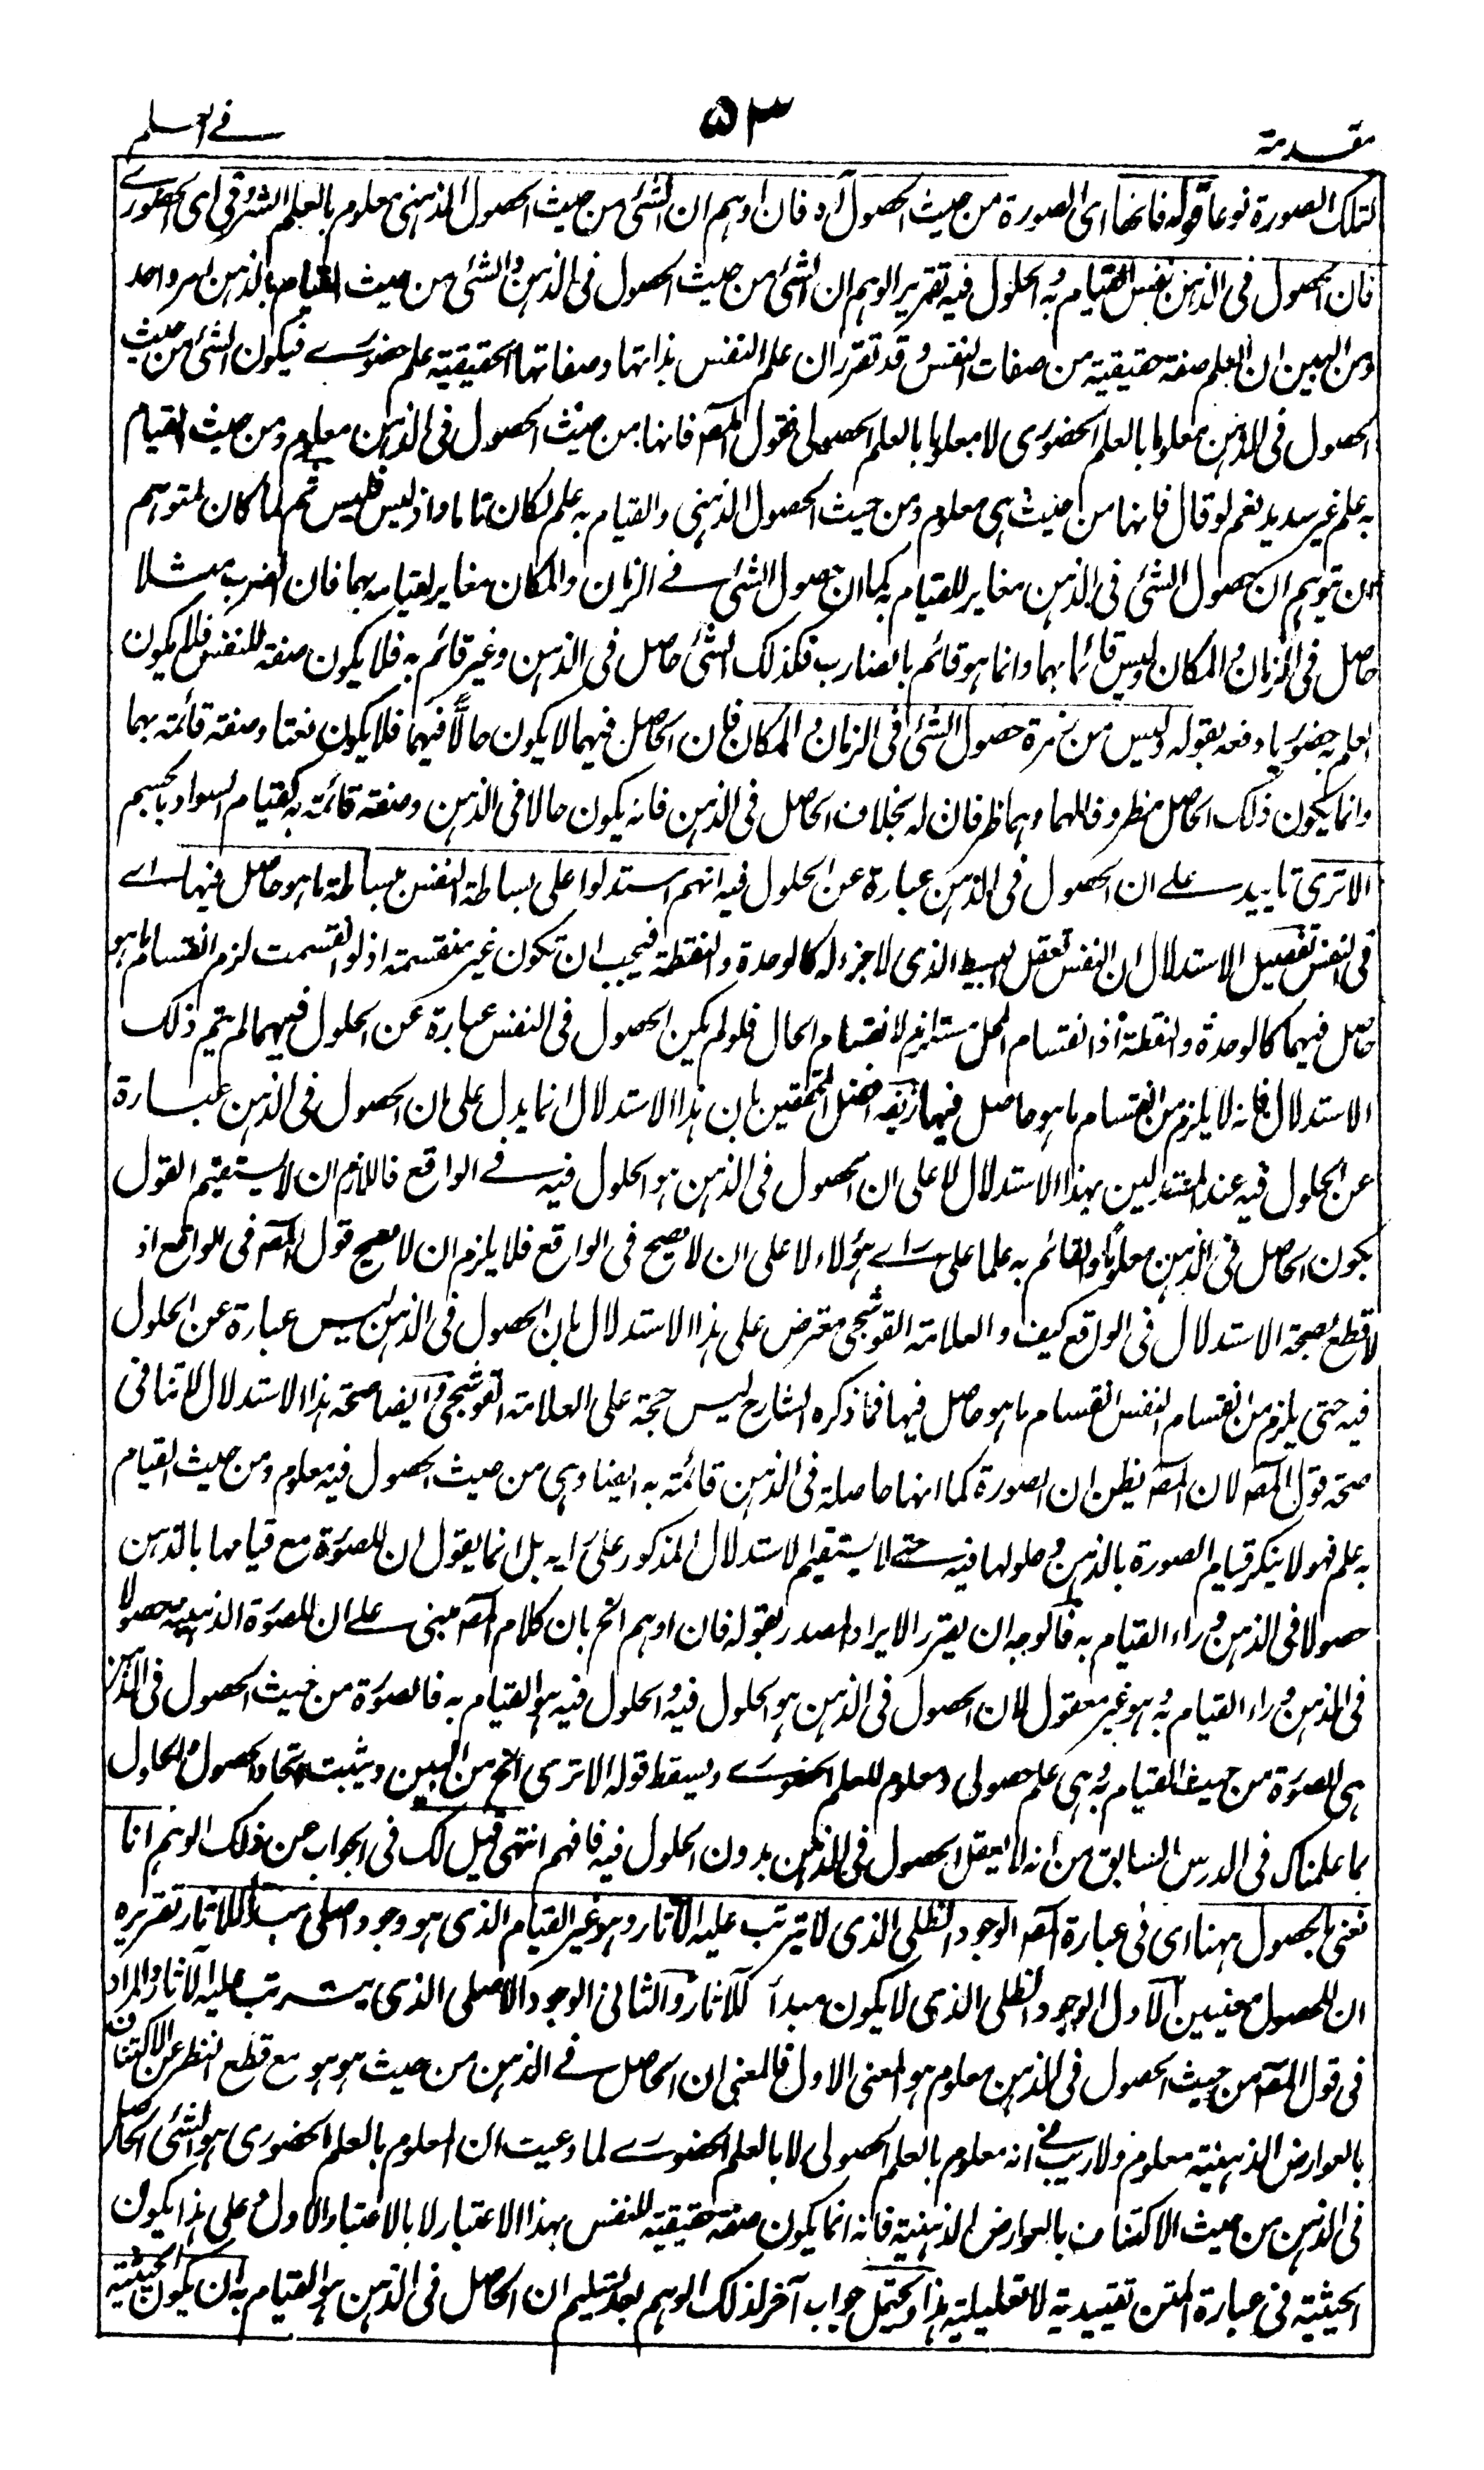 مقدمة
۵۳
فے العلم
لتلك الصورة نوعا قوله فانها اى الصورة من حيث الحصول آه فان اوهم ان الشئ من حيث الحصول الذهنى معلوم بالعلم الشرقى اى الحضورے
فان الحصول فى الذهن نفس القيام به والحلول فيه تقرير الوهم ان الشئ من حيث الحصول فى الذهن والشئ من حيث القيام بالذهن امر واحد
ومن البين ان العلم صفة حقيقية من صفات النفس وقد تقرر ان علم النفس بذاتها وصفاتها الحقيقية علم حضورے فيكون الشئ من حيث
الحصول فى الذهن معلوما بالعلم الحضورى لا معلوما بالعلم الحصولى فقول المصـ فانها من حيث الحصول فى الذهن معلوم ومن حيث القيام
به علم غير سديد نعم لو قال فانها من حيث هى معلوم ومن حيث الحصول الذهنى والقيام به علم لكان تاما واذ ليس فليس ثم لما كان لمتوهم
ان يتوهم ان حصول الشئ فى الذهن مغاير للقيام به كما ان حصول الشئ فے الزمان والمكان مغاير لقيامه بهما فان الضرب مثلا
حاصل فى الزمان والمكان وليس قائما بهما وانما هو قائم بالضارب فكذلك الشئ حاصل فى الذهن وغير قائم به فلا يكون صفة للنفس فلا يكون
العلم به حضوريا دفعه بقوله وليس من زمرة حصول الشئ فى الزمان والمكان فان الحاصل فيهما لا يكون حالًّا فيهما فلا يكون نعتا وصفة قائمة بهما
وانما يكون ذلك الحاصل مظروفا لهما وهما ظرفان له بخلاف الحاصل فى الذهن فانه يكون حالا فى الذهن وصفة قائمة به كقيام السواد بالجسم
الا ترى تاييد علے ان الحصول فى الذهن عبارة عن الحلول فيه انهم استدلوا على بساطة النفس ببساطة ما هو حاصل فيها اے
فى النفس تفصيل الاستدلال ان النفس تعقل البسيط الذى لا جزء له كالوحدة والنقطة فيجب ان تكون غير منقسمة اذ لو انقسمت لزم انقسام ما هو
حاصل فيهما كالوحدة والنقطة اذ انقسام المحل مستلزم لانقسام الحال فلو لم يكن الحصول فى النفس عبارة عن الحلول فيهما لم يتم ذلك
الاستدلال فانه لا يلزم من انقسام ما هو حاصل فيها زيفه افضل المحققين بان هذا الاستدلال انما يدل على ان الحصول فى الذهن عبارة
عن الحلول فيه عند المستدلين بهذا الاستدلال لا على ان الحصول فى الذهن هو الحلول فيه فے الواقع فاللازم ان لا يستقيم القول
بكون الحاصل فى الذهن معلوما والقائم به علما على راے هؤلاء لا على ان لا يصح فى الواقع فلا يلزم ان لا يصح قول المصـ فى الواقع اذ
لا قطع بصحة الاستدلال فى الواقع كيف والعلامة القوشجى معترض على هذا الاستدلال بان الحصول فى الذهن ليس عبارة عن الحلول
فيه حتى يلزم من انقسام النفس انقسام ما هو حاصل فيها فما ذكره الشارح ليس حجة على العلامة القوشجى وايضا صحة هذا الاستدلال لا تنافى
صحة قول المصـ لان المصـ يظن ان الصورة كما انها حاصلة فى الذهن قائمة به ايضا وهى من حيث الحصول فيه معلوم ومن حيث القيام
به علم فهو لا ينكر قيام الصورة بالذهن وحلولها فيه حتے لا يستقيم الاستدلال المذكور على رايه بل انما يقول ان للصورة مع قيامها بالذهن
حصولا فى الذهن وراء القيام به فالوجه ان يقرر الايراد المصدر بقوله فان اوهم الخ بان كلام المصـ مبنى علے ان للصورة الذهنية حصولا
فى الذهن وراء القيام به وهو غير معقول لان الحصول فى الذهن هو الحلول فيه والحلول فيه هو القيام به فالصورة من حيث الحصول فى الذهن
هى الصورة من حيث القيام به وهى علم حصولى ومعلوم للعلم الحضورے ويسقط قوله الا ترى الخ من البين ويثبت اتحاد الحصول والحلول
بما علمناك فى الدرس السابق من انه لا يعقل الحصول فى الذهن بدون الحلول فيه فافهم انتهى قيل لك فى الجواب عن ذلك الوهم انا
نعنى بالحصول ههنا اى فى عبارة المصـ الوجود الظلى الذى لا يترتب عليه الآثار وهو غير القيام الذى هو وجود اصلى مبدأ للآثار تقريره
ان للحصول معنيين الاول الوجود الظلى الذى لا يكون مبدأ للآثار والثانى الوجود الاصلى الذى يترتب عليه الآثار والمراد
فى قول المصـ من حيث الحصول فى الذهن معلوم هو المعنى الاول فالمعنى ان الحاصل فے الذهن من حيث هو هو مع قطع النظر عن الاكتناف
بالعوارض الذهنية معلوم ولا ريب فى انه معلوم بالعلم الحصولى لا بالعلم الحضورے لما وعيت ان المعلوم بالعلم الحضورى هو الشئ الحاصل
فى الذهن من حيث الاكتناف بالعوارض الذهنية فانه انما يكون صفة حقيقية للنفس بهذا الاعتبار لا بالاعتبار الاول وعلى هذا يكون
الحيثية فى عبارة المتن تقييدية لا تعليلية هذا ويحتمل جواب آخر لذلك الوهم بعد تسليم ان الحاصل فى الذهن هو القيام به ان يكون الحيثية